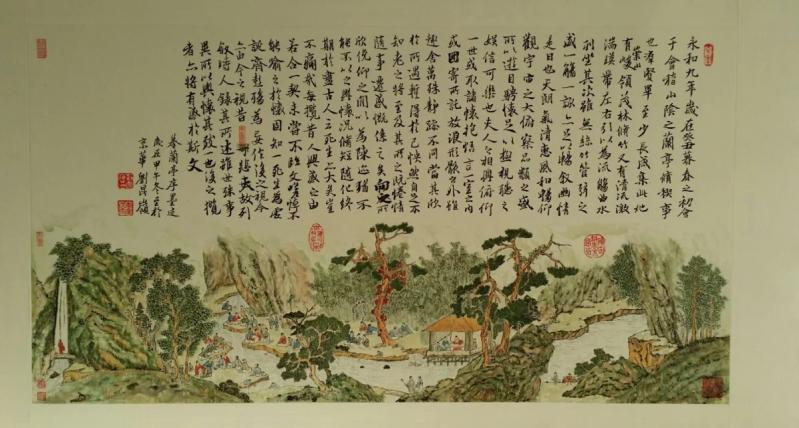 永和九年歲在癸丑暮春之初會
于會稽山陰之蘭亭脩禊事
也羣賢畢至少長咸集此地
有崇山峻領茂林脩竹又有清流激
湍暎帶左右引以為流觴曲水
列坐其次雖無絲竹管弦之
盛一觴一詠亦足以暢叙幽情
是日也天朗氣清惠風和暢仰
觀宇宙之大俯察品類之盛
所以遊目騁懷足以極視聽之
娛信可樂也夫人之相與俯仰
一世或取諸懷抱悟言一室之內
或因寄所託放浪形骸之外雖
趣舍萬殊靜躁不同當其欣
於所遇暫得於己怏然自足不
知老之將至及其所之既惓情
隨事遷感慨係之矣向之所
欣俛仰之間以為陳迹猶不
能不以之興懷況脩短隨化終
期於盡古人云死生亦大矣豈
不痛哉每攬昔人興感之由
若合一契未嘗不臨文嗟悼不
能喻之於懷固知一死生為虛
誕齊彭殤為妄作後之視今
亦由今之視昔悲夫故列
叙時人錄其所述雖世殊事
異所以興懷其致一也後之攬
者亦將有感於斯文
摹蘭亭序墨迹
歲在甲午冬至於
京華劉昌嶺